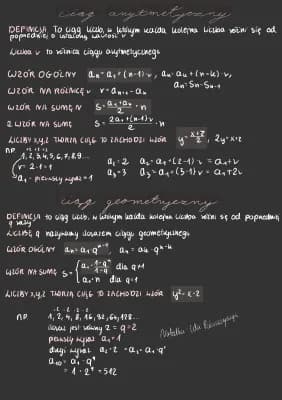 ciąg arytmetyczny
DEFINICJA To ciąg liczb, w którym każda kolejna liczba różni się od
poprzedniej o ustaloną wartość r
Liczba r to różnica ciągu arytmetycznego
WZÓR OGÓLNY an=a1+(n-1)·r, an=ak+(n-k)·r,
WZÓR NA RÓŻNICĘ r=an+1-an an=Sn-Sn-1
WZÓR NA SUMĘ n S=a1+an/2·n
2 WZÓR NA SUMĘ S=2a1+(n-1)r/2·n
LICZBY x,y,z TWORZĄ CIĄG TO ZACHODZI WZÓR y=x+z/2, 2y=x+z
np. +1 +1 +1 +1
1,2,3,4,5,6,7,8,9...
r=2-1=1
a1=pierwszy wyraz=1
a1=2 a2=a1+(2-1)·r=a1+r
a2=3 a3=a1+(3-1)·r=a1+2r
ciąg geometryczny
DEFINICJA to ciąg liczb, w którym każda kolejna liczba różni się od poprzedniej
q razy
LICZBĘ q nazywamy ilorazem ciągu geometrycznego
WZÓR OGÓLNY an=a1·q^n-1, an=ak·q^n-k
WZÓR NA SUMĘ S={a1·1-q^n/1-q dla q≠1
a1·n dla q=1
LICZBY x,y,z TWORZĄ CIĄG TO ZACHODZI WZÓR y²=x·z
np. ·2 ·2 ·2 ·2
1,2,4,8,16,32,64,128...
iloraz jest równy 2=q=2
pierwszy wyraz a1=1
drugi wyraz a2=2=a1=a1·q¹
a10=a1·q⁹
=1·2⁹=512
Notatka